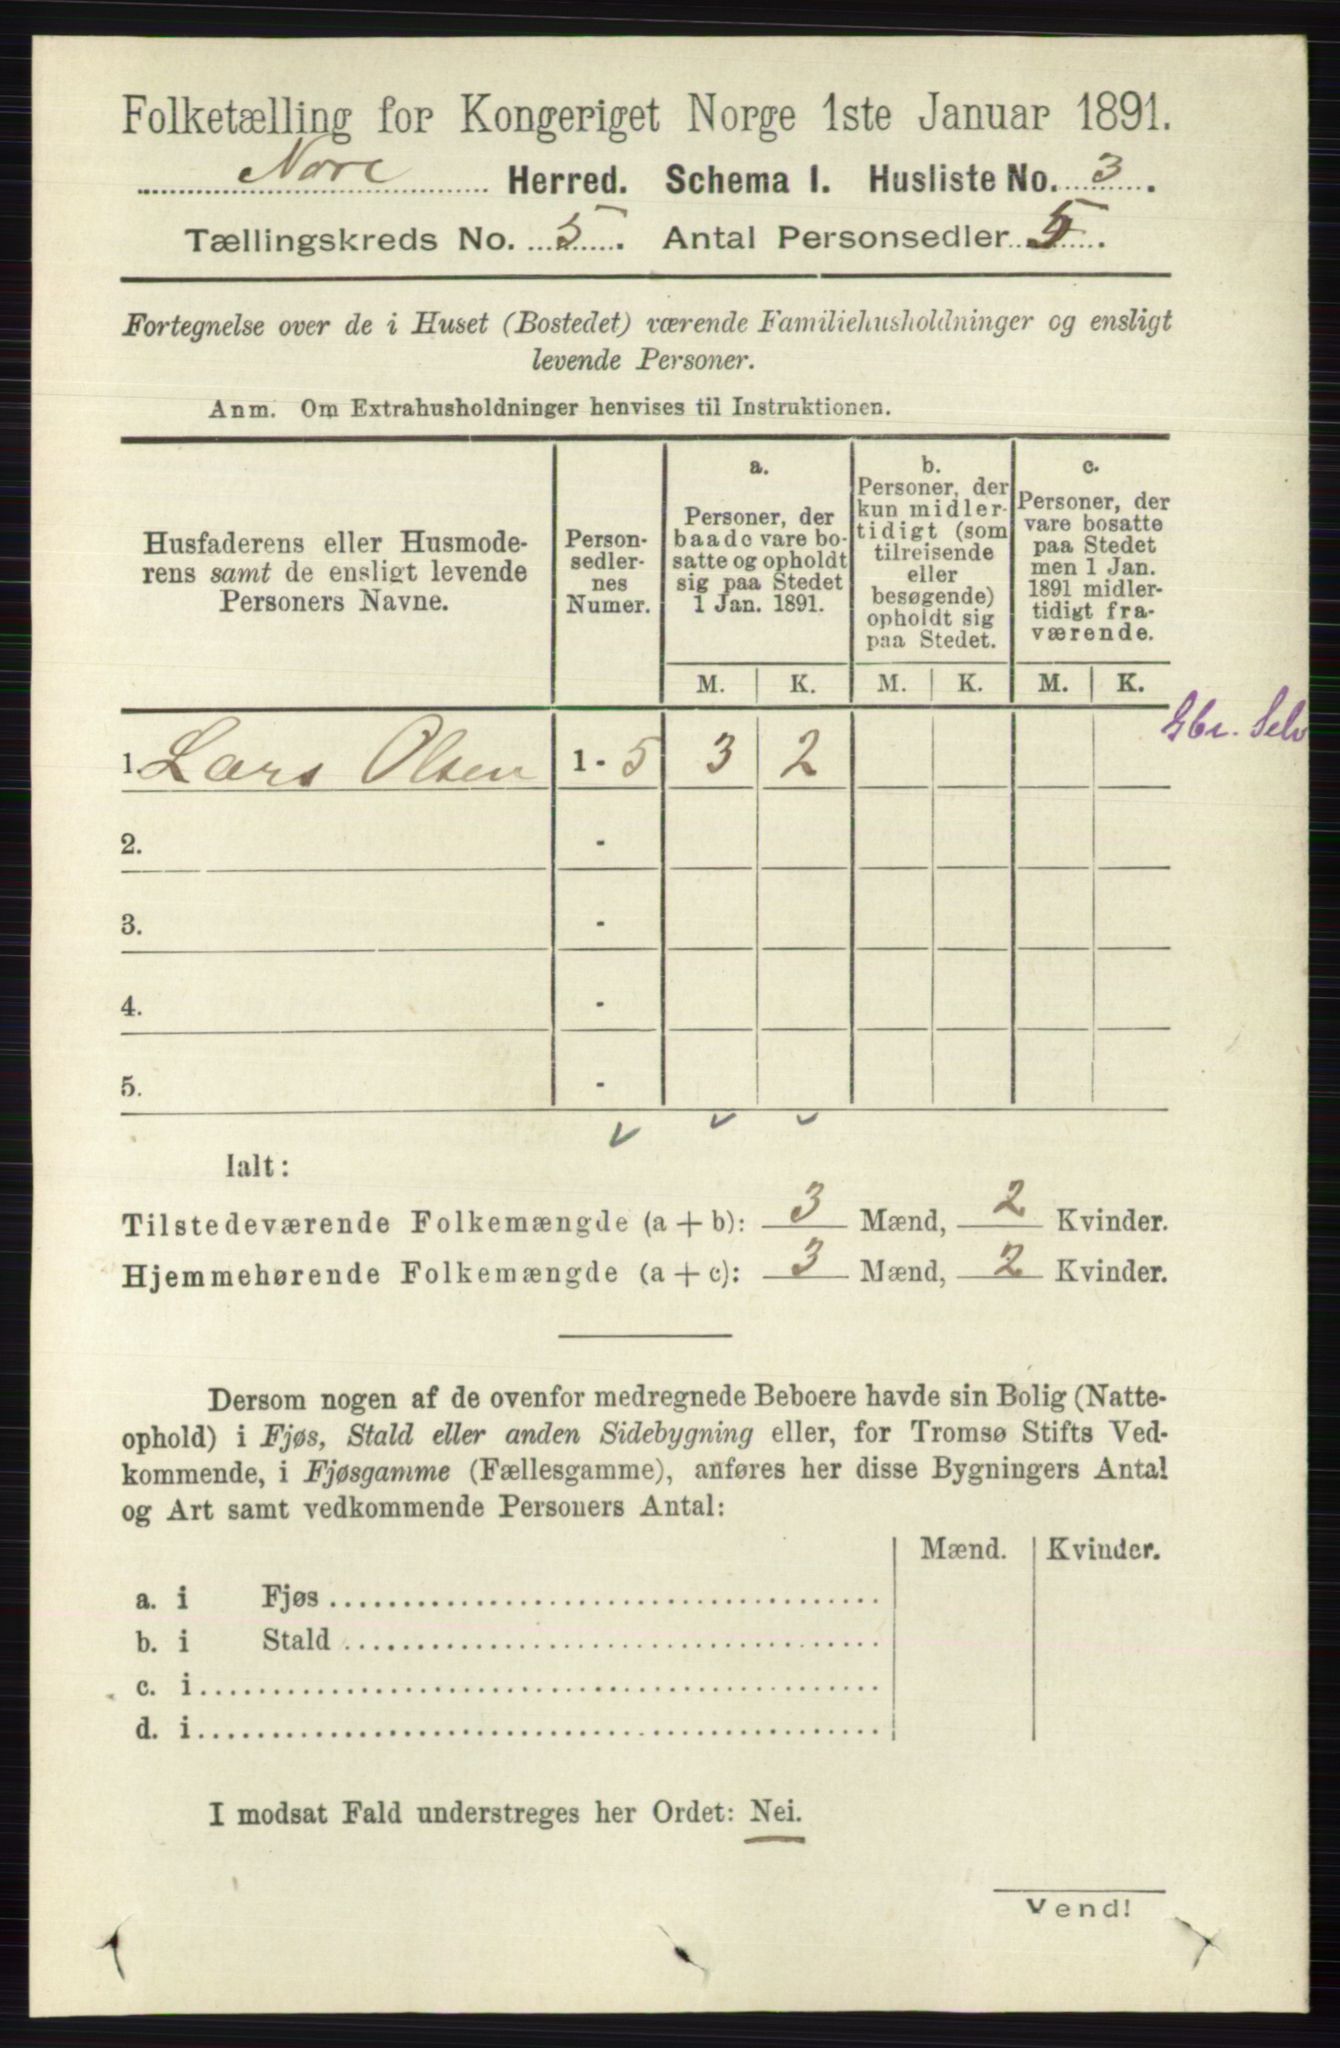 Folketælling for Kongeriget Norge 1ste Januar 1891.
Nore Herred. Schema I. Husliste No. 3.
Tællingskreds No. 5. Antal Personsedler 5.
Fortegnelse over de i Huset (Bostedet) værende Familiehusholdninger og ensligt
levende Personer.
Anm. Om Extrahusholdninger henvises til Instruktionen.
Husfaderens eller Husmode-
rens samt de ensligt levende
Personers Navne.
Person-
sedler-
nes
Numer.
a.
Personer, der
baade vare bo-
satte og opholdt
sig paa Stedet
1 Jan. 1891.
b.
Personer, der
kun midler-
tidigt (som
tilreisende
eller
besøgende)
opholdt sig
paa Stedet.
c.
Personer, der
vare bosatte
paa Stedet
men 1 Jan.
1891 midler-
tidigt fra-
værende.
M. K. M. K. M. K.
Gbr. Selv
1. Lars Olsen 1 - 5 3 2
2. -
3. -
4. -
5. -
Ialt:
Tilstedeværende Folkemængde (a + b): 3 Mænd, 2 Kvinder.
Hjemmehørende Folkemængde (a + c): 3 Mænd, 2 Kvinder.
Dersom nogen af de ovenfor medregnede Beboere havde sin Bolig (Natte-
ophold) i Fjøs, Stald eller anden Sidebygning eller, for Tromsø Stifts Ved-
kommende, i Fjøsgamme (Fællesgamme), anføres her disse Bygningers Antal
og Art samt vedkommende Personers Antal:
Mænd. Kvinder.
a. i Fjøs
b. i Stald
c. i
d. i
I modsat Fald understreges her Ordet: Nei.
Vend!